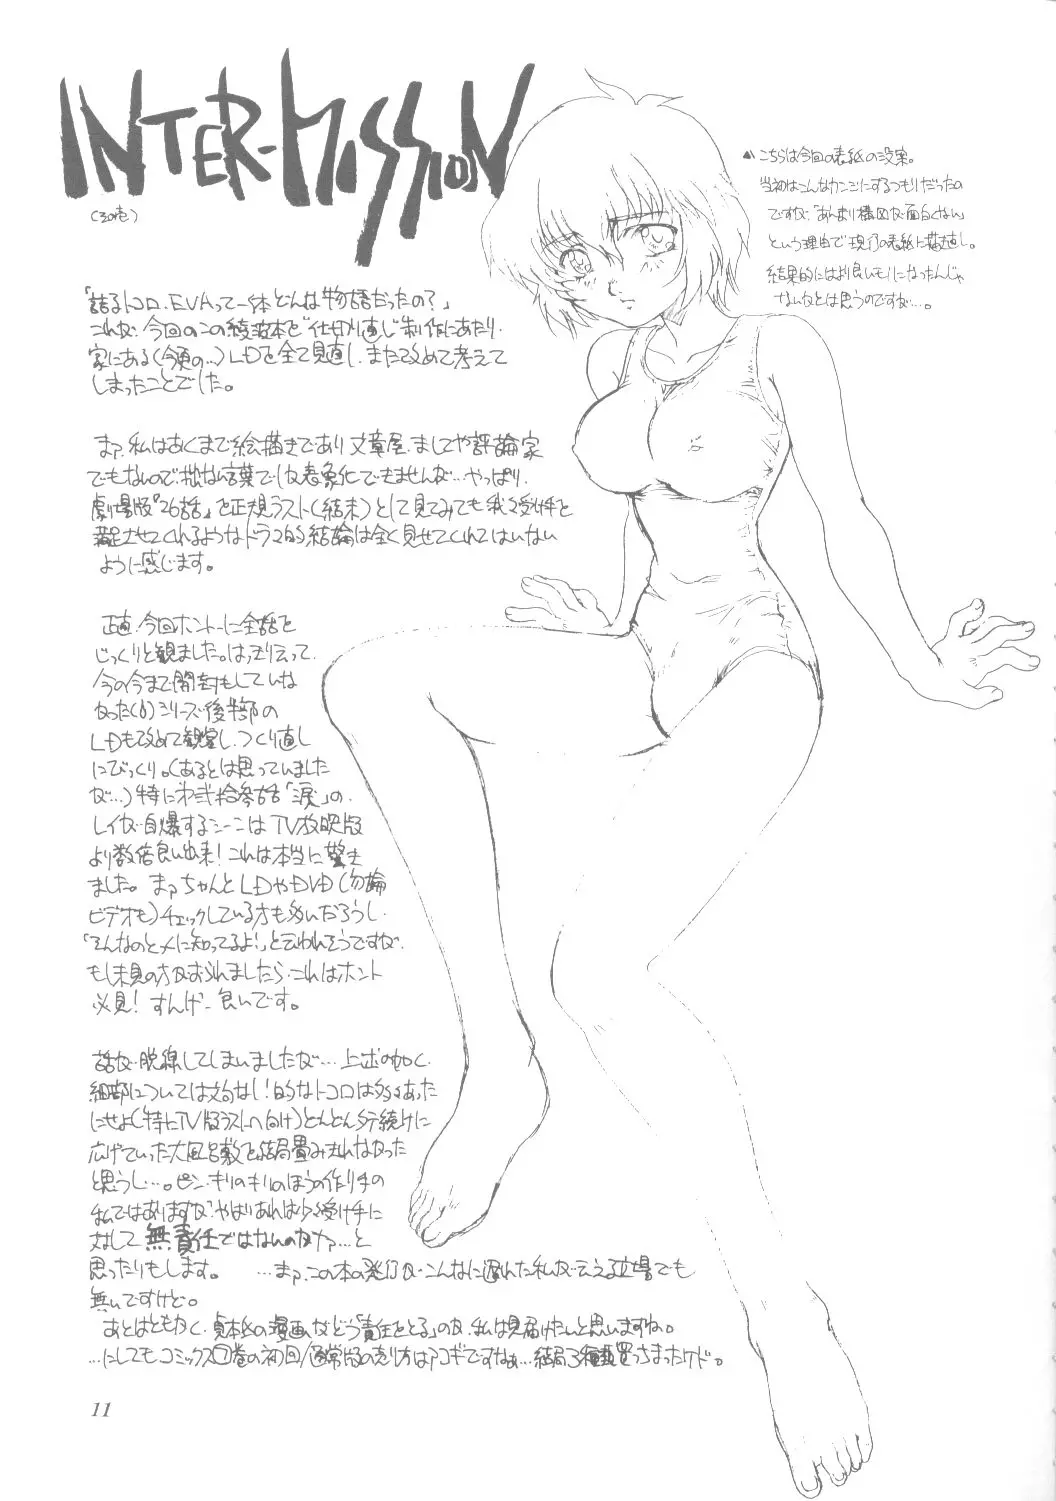 INTER-MISSION
(その壱)
「詰るトコロ、EVAって一体どんな物語だったの?」
これが、今回のこの綾波本を"仕切り直し"制作にあたり、
家にある(今更の…)LDを全て見直し、また改めて考えて
しまったことでした。
まァ、私はあくまで絵描きであり文章屋、ましてや評論家
でもないので、拙ない言葉でしか表象化できませんが…やっぱり、
劇場版『26話』を正規ラスト(結末)として見てみても我々受け手を
満足させてくれるようなドラマ的結論は全く見せてくれてはいない
ように感じます。
正直、今回ホントーに全話を
じっくりと観ました。はっきり言って、
今の今まで開封もしていな
かった(!)シリーズ後半部の
LDも改めて観賞し、つくり直し
にびっくり。(あるとは思っていました
が…)特に第弐拾参話「涙」の、
レイが自爆するシーンはTV放映版
より数倍良い出来!これは本当に驚き
ました。まァちゃんとLDやDVD(勿論
ビデオも)チェックしている方も多いだろうし、
「そんなのとっくに知ってるよ!」と云われそうですが、
もし未見の方がおられましたら、これはホント
必見!すんげー良いです。
話が脱線してしまいましたが…上述の如く、
細部については文句なし!的なトコロは多々あった
にせよ(特にTV版ラストへ向け)どんどん夕テ続けに
広げていった大風呂敷を結局畳みきれなかった
と思うし…。ピン・キリのキリのほうの作り手の
私ではありますが、やはりあれは少々受け手に
対して無責任ではないのかァ…と
思ったりもします。 …まァ、この本の発行がこんなに遅れた私が云える立場でも
無いですけど。
あとはともかく、貞本氏の漫画がどう「責任をとる」のか、私は見届けたいと思いますね。
…にしてもコミックス⑦巻の初回/通常版の売り方はアコギですなぁ…結局3種買っちまったケド。
こちらは今回の表紙の没案。
当初はこんなカンジにするつもりだったの
ですが、「あんまり構図が面白くない」
という理由で現行の表紙に描き直し。
結果的にはより良いモノになったんじゃ
ないかとは思うのですが…。
11